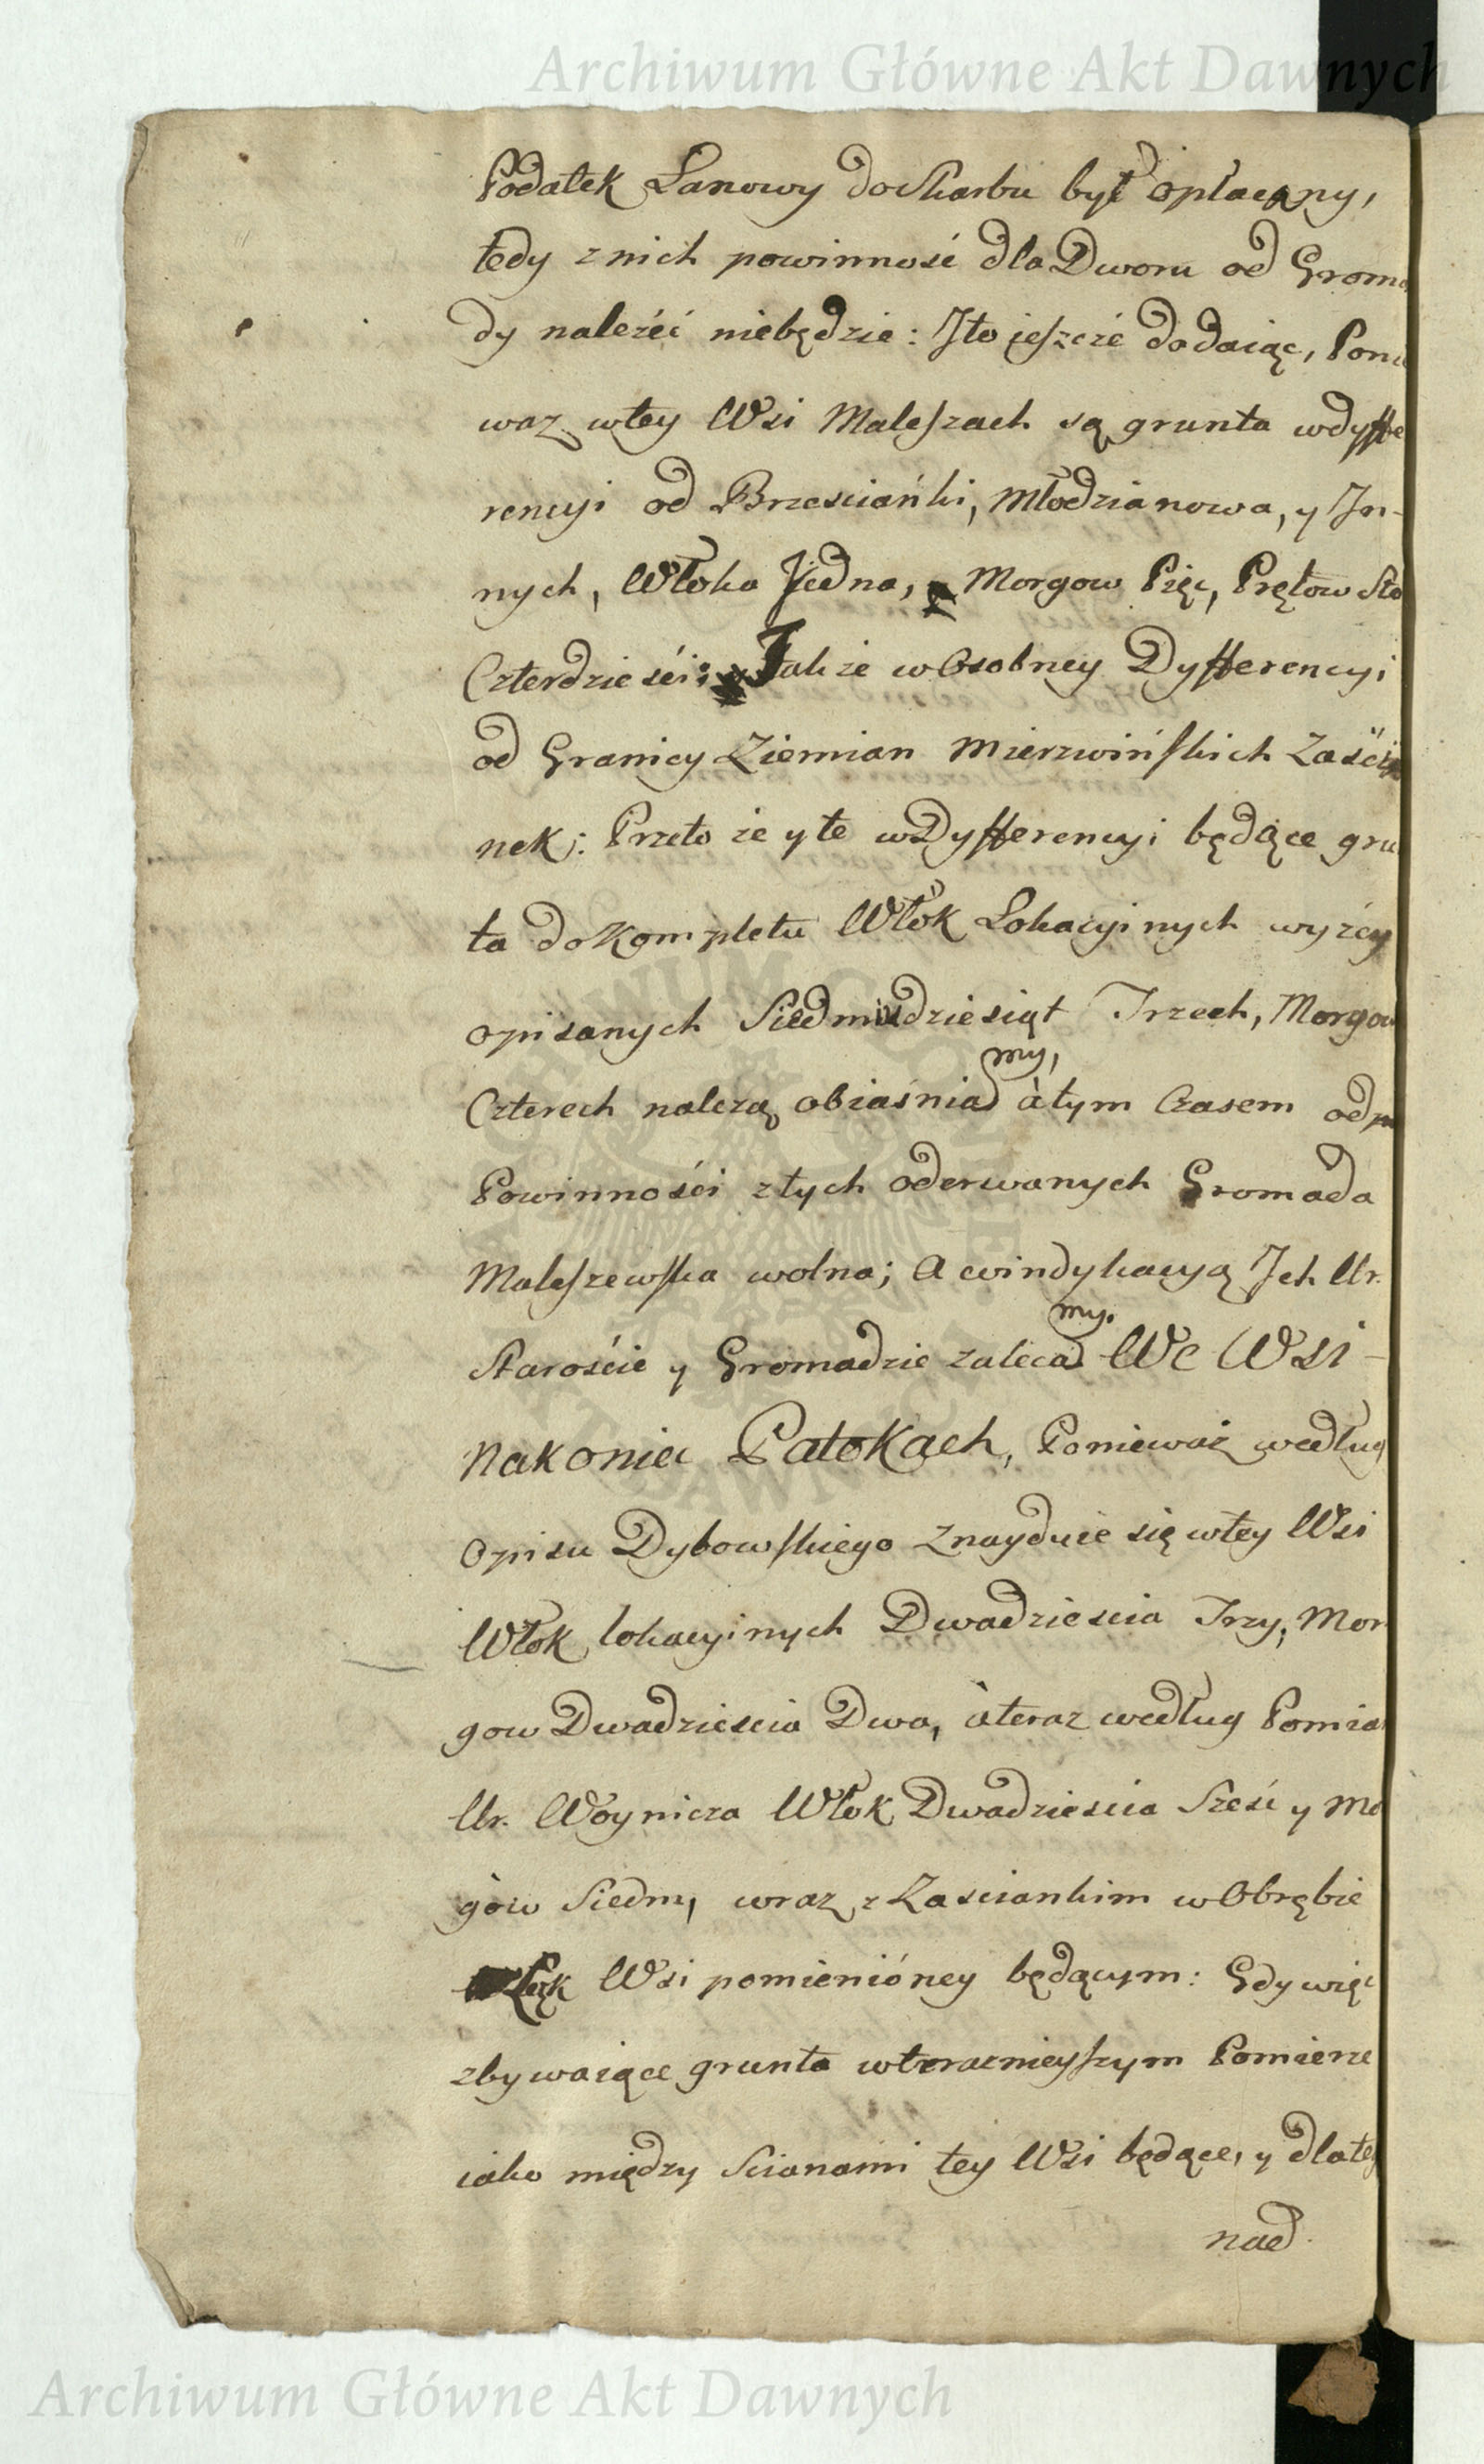 Archiwum Główne Akt Dawnych
Podatek Łanowy do Skarbu był opłacany,
tedy z nich powinność dla Dworu od Groma
dy należéć niebędzie: Jto jeszczé dodaiąc, Ponie
waż wtey Wsi Maleszach są grunta wdyffe
rencyi od Brzesciańki, Młodzianowa, y In-
nych, Włoka Jedna, Morgow Pięc, Prętow Sto
Czterdzieści; Jakże w Osobney Dyfferencyi
od Granicy Ziemian Mierzwińskich Zaścia
nek; Przeto że y te w Dyfferencyi będące gru
ta do Kompletu Włok Lokacyinych wyżey
opisanych Siedmiudziesiąt Trzech, Morgow
my,
Czterech należą obiaśniaɗ àtym Czasem od
Powinności ztych oderwanych Gromada
Maleszewska wolna; A windykacyą Jch Ur.
my.
Staroście y Gromadzie zaleca We Wsi -
Nakoniec Patokach, Ponieważ według
Opisu Dybowskiego Znayduie się wtey Wsi
Włok lokacyinych Dwadziescia Trzy, Mor
gow Dwadziescia Dwa, àteraz według Pomia
Ur. Woynicza Włok Dwadziescia Sześć y Mo
gów Siedm, wraz z Zasciankim w Obrębie
Wsi pomienióney będącym: Gdy więc
zbywaiące grunta wteraznieyszym Pomierze
iako między Scianami tey Wsi będące, y dla te
nad
Archiwum Główne Akt Dawnych